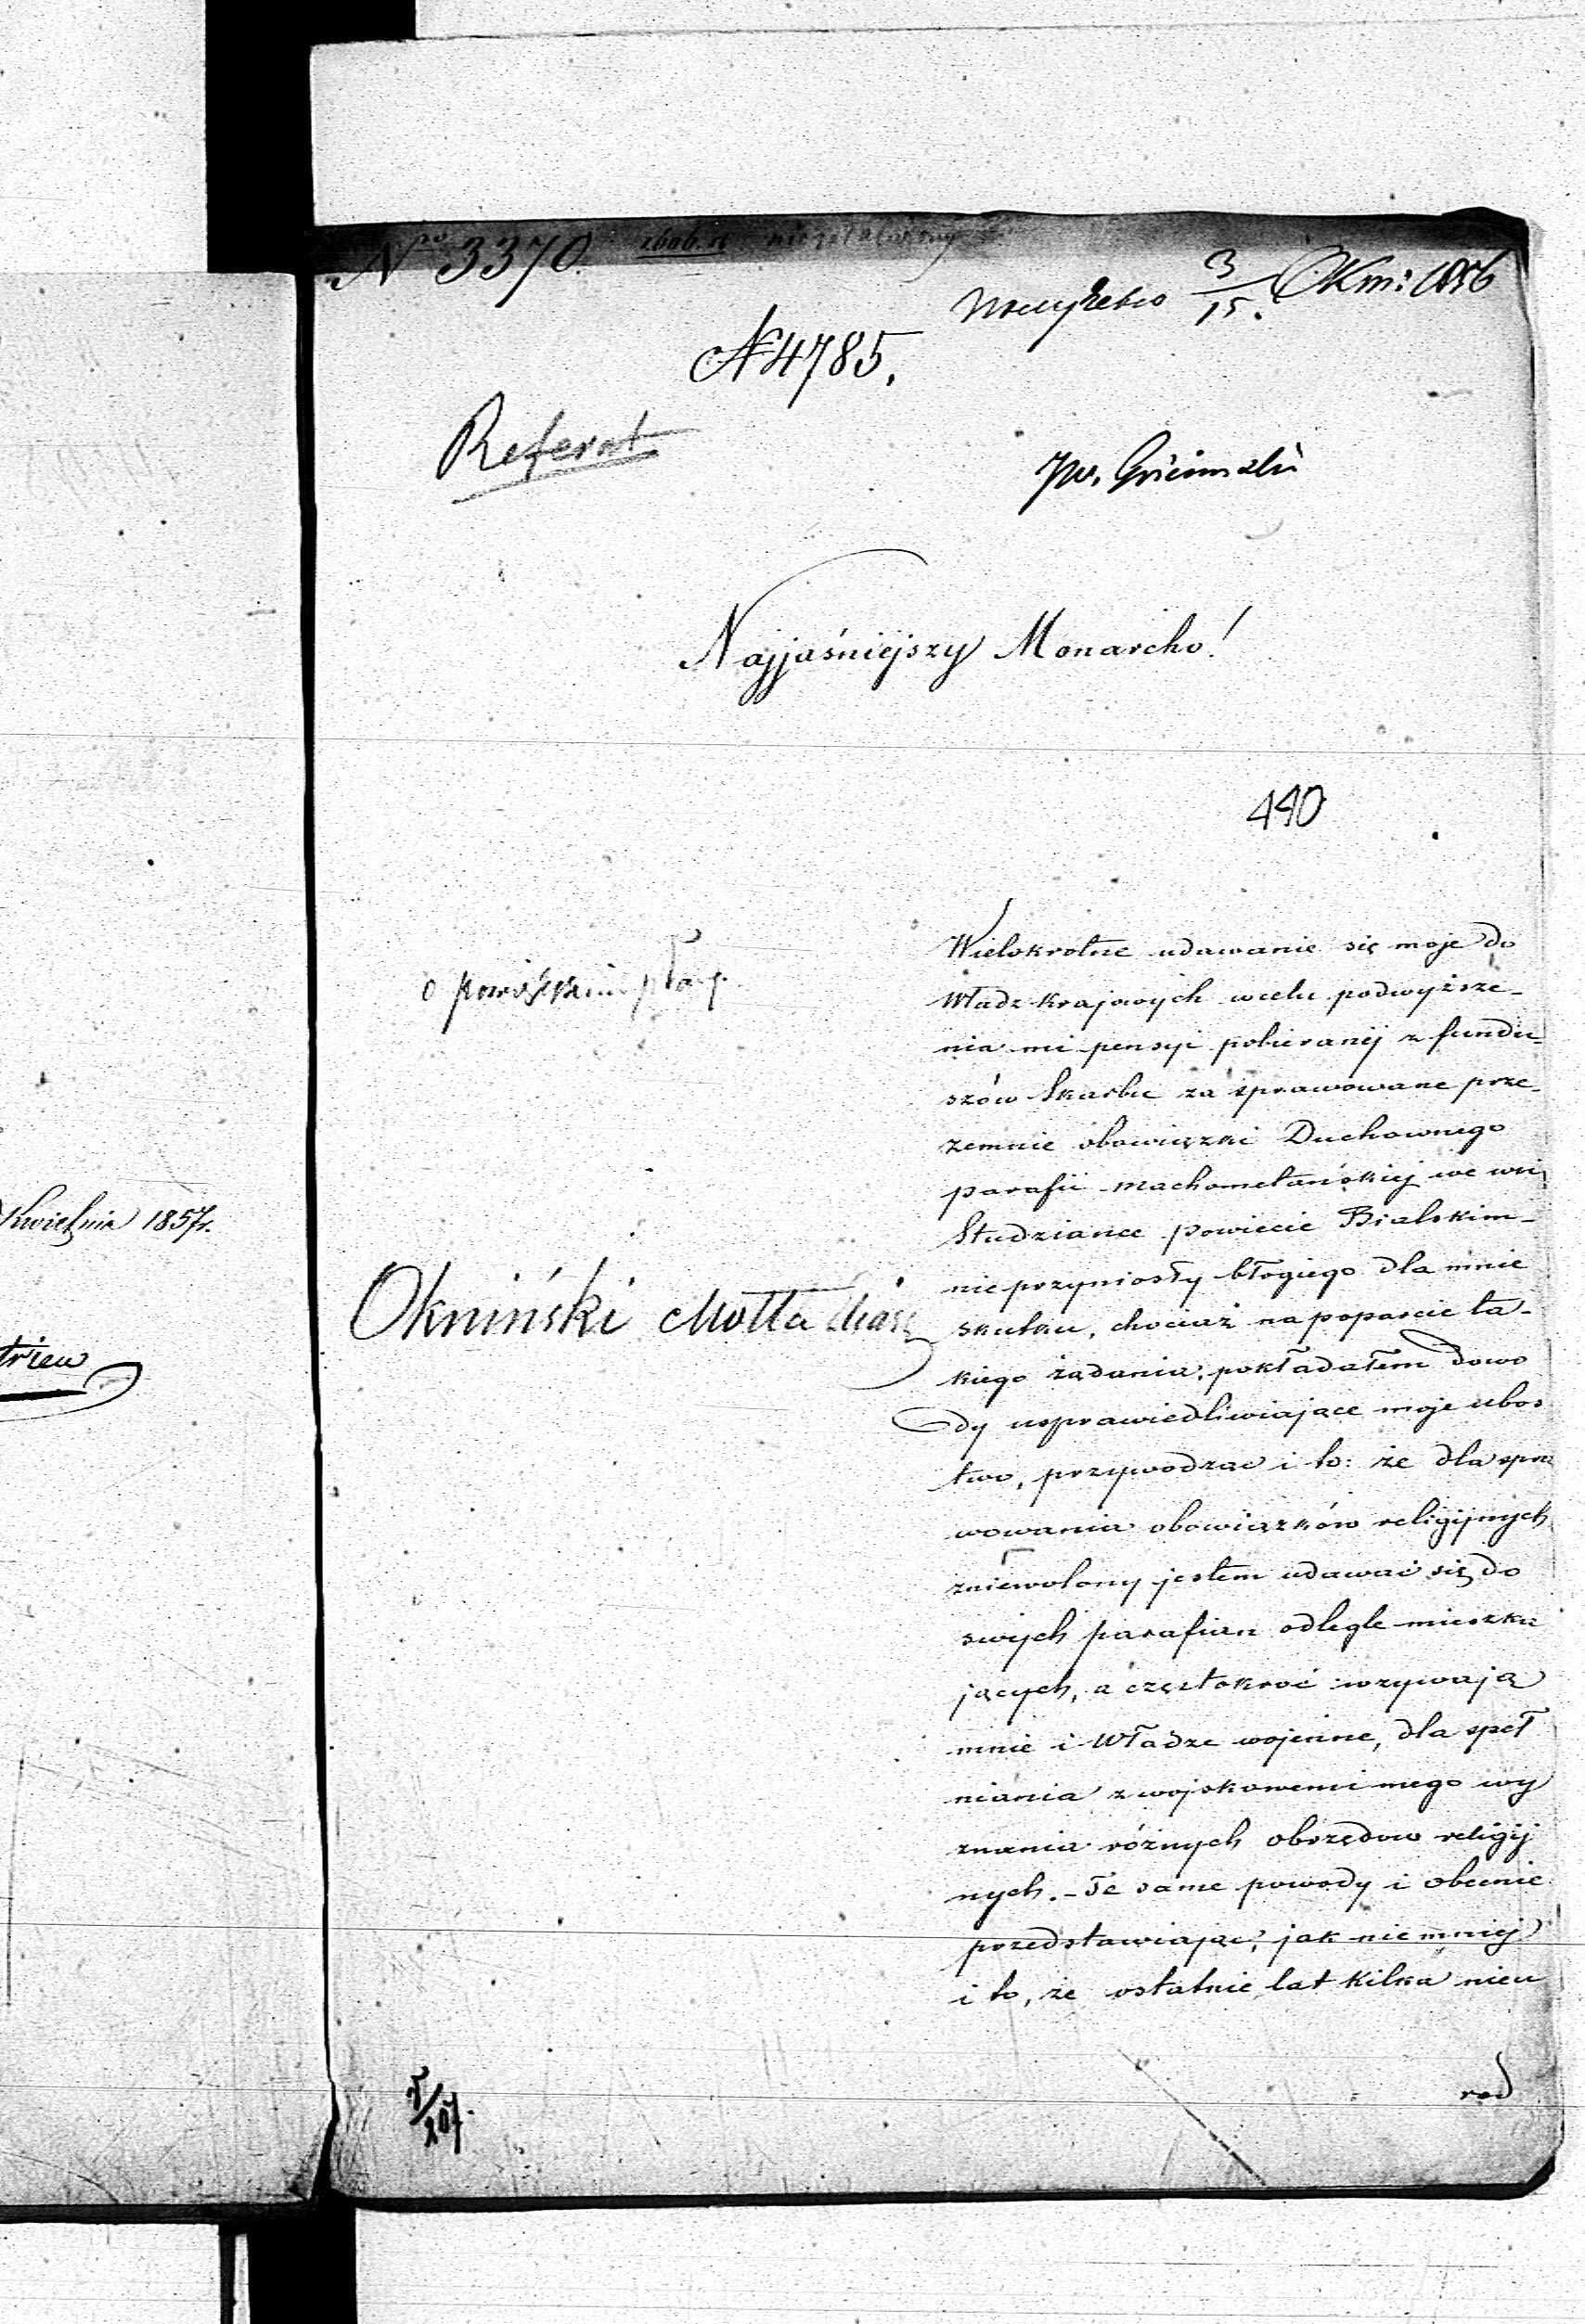 Kwietnia 1857.
trieu
N po 3370.
получено 3/15. Окт: 1856
N 4785.
Referat
Najjaśniejszy Monarcho!
440
o powiększenie płacy
Okniński Mołła
Wielokrotne udawanie się moje do
Władz krajowych w celu podwyższe-
nia mi pensyi pobieranéj z fundu-
szów Skarbu za sprawowane prze-
zemnie obowiązki Duchownego
parafii machometańskiej we wsi
Studziance powiecie Bialskim-
nie przyniosły błogiego dla mnie
skutku, chociaż na poparcie ta-
kiego żądania; pokładałem dowo
dy usprawiedliwiające moje ubos
two, przywodząc i to: że dla spra
wowania obowiązków religijnych
zniewolony jestem udawać się do
swych parafian odlegle mieszka
jących, a częstokroć wzywają
mnie i Władze wojenne, dla speł
niania z wojskowemi mego wy
znania różnych obrzędow religij
nych. - Te same powody i obecnie
przedstawiając, jak niemniej
i to, że ostatnie lat kilka nieu
rod